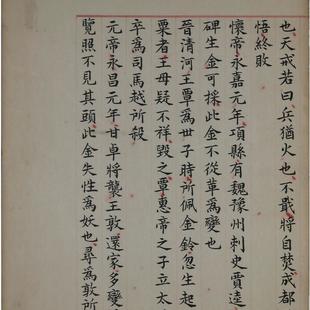 也天戒若曰兵猶火也不戢將自焚成都
悟終敗
懷帝永嘉元年項縣有魏豫州刺史賈逵
碑生金可採此金不從革爲變也
晉清河王覃爲世子時所佩金鈴忽生起
粟者王母疑不祥毀之覃惠帝之子立太
卒爲司馬越所殺
元帝永昌元年甘卓將襲王敦還家多變
覽照不見其頭此金失性爲妖也尋爲敦所